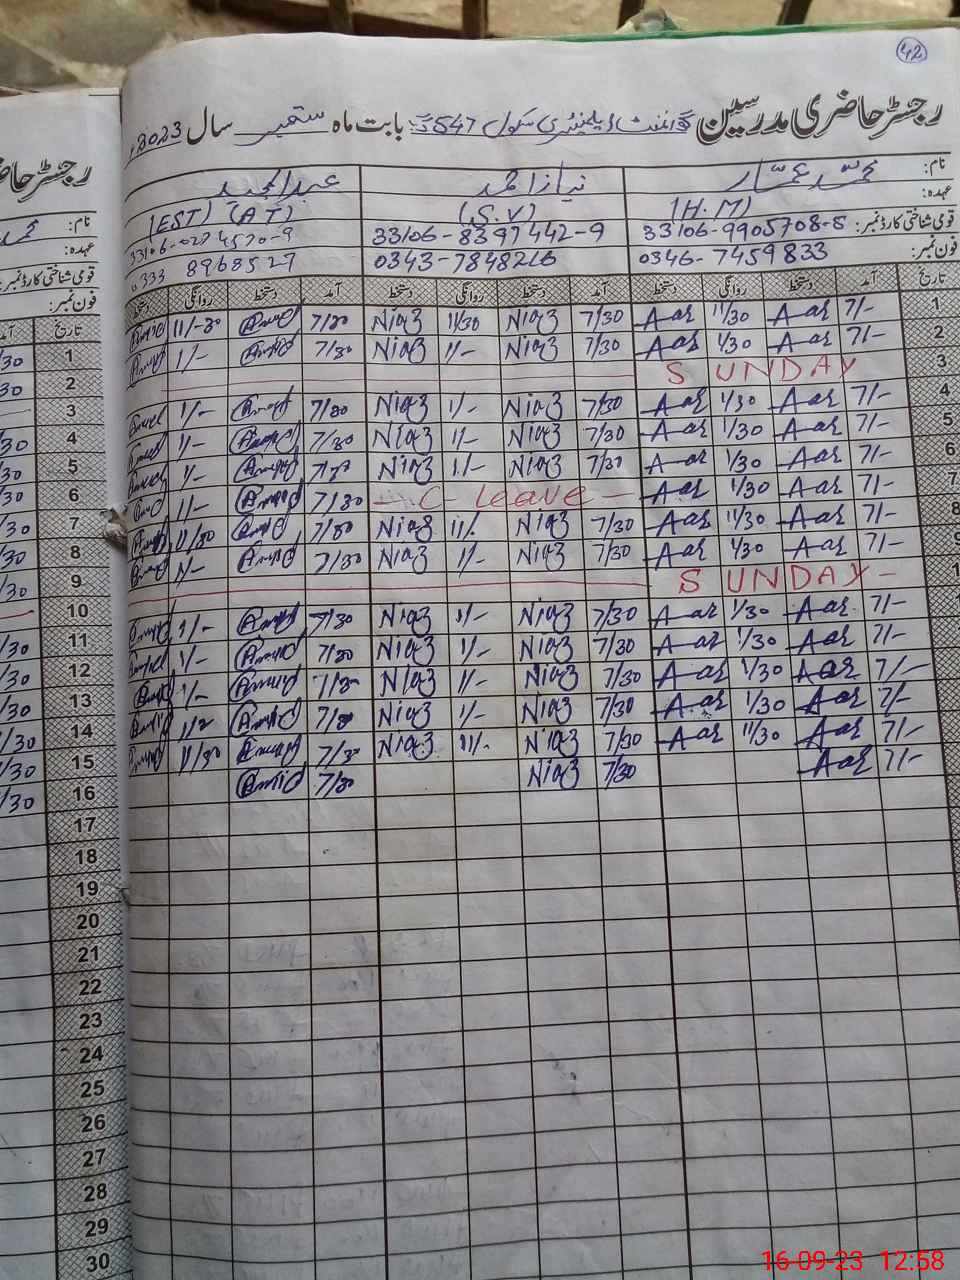 42
رجسٹر حاضری مدرسین گورنمنٹ ایلیمنٹری سکول 547 گ ب بابت ماہ ستمبر سال 2023ء
نام: محمد عمّار نیاز احمد عبدالمجید
عہدہ: (H.M) (S.V) (EST) (AT)
قومی شناختی کارڈ نمبر: 33106-9905708-5 33106-8397442-9 33106-0274570-9
فون نمبر: 0346-7459833 0343-7848216 0333 8968527
تاریخ آمد دستخط روانگی دستخط آمد دستخط روانگی دستخط آمد دستخط روانگی دستخط
1 7/- 11/30 7/30 Niaz 11/30 Niaz 7/30 11/-30
2 7/- 1/30 7/30 Niaz 1/- Niaz 7/30 1/-
3 SUNDAY
4 7/- 1/30 7/30 Niaz 1/- Niaz 7/30 1/-
5 7/- 1/30 7/30 Niaz 1/- Niaz 7/30 1/-
6 7/- 1/30 7/30 Niaz 1/- Niaz 1/-
7 7/- 1/30 - C - Leave - 7/30 1/-
8 7/- 11/30 7/30 Niaz 11/. Niaz 7/30 11/30
9 7/- 1/30 7/30 Niaz 1/- Niaz 7/30 1/-
SUNDAY -
7/- 1/30 7/30 Niaz 1/- Niaz 7/30 1/-
7/- 1/30 7/30 Niaz 1/- Niaz 7/30 1/-
7/- 1/30 7/30 Niaz 1/- Niaz 7/30 1/-
7/- 1/30 7/30 Niaz 1/- Niaz 7/30
7/- 11/30 7/30 Niaz 11/. Niaz 7/30 11/30
7/- 7/30 Niaz 7/30
رجسٹر حاضری
نام:
عہدہ:
قومی شناختی کارڈ نمبر:
فون نمبر:
تاریخ
1
2
3
4
5
6
7
8
9
10
11
12
13
14
15
16
17
18
19
20
21
22
23
24
25
26
27
28
29
30
16-09-23 12:58